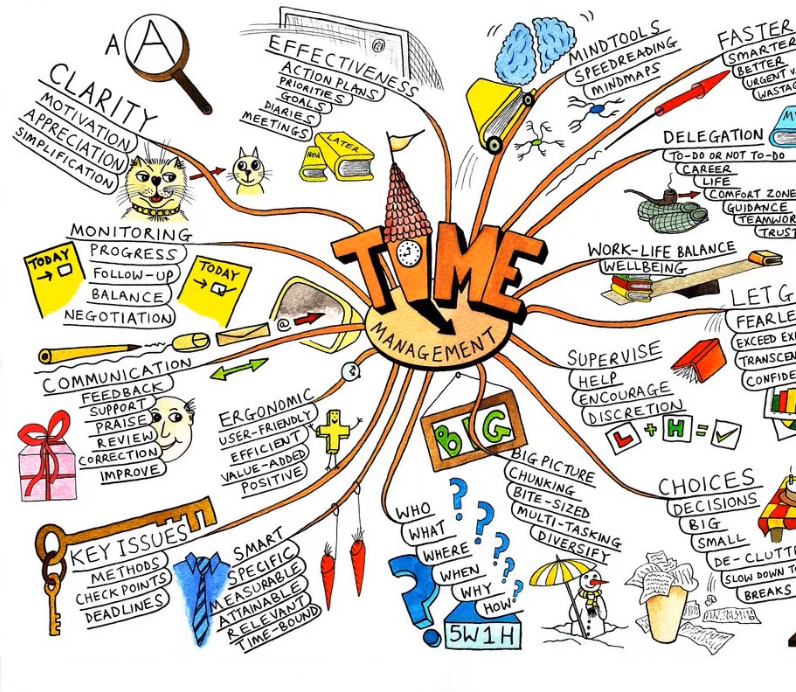 A A
CLARITY
MOTIVATION
APPRECIATION
SIMPLIFICATION
EFFECTIVENESS
ACTION PLANS
PRIORITIES
GOALS
DIARIES
MEETINGS
@
NOW
LATER
MINDTOOLS
SPEEDREADING
MINDMAPS
FASTER
SMARTER
BETTER
URGENT
DELEGATION
TO-DO OR NOT TO-DO
CAREER
LIFE
COMFORT ZONE
GUIDANCE
TEAMWOR
TRUST
MY
MONITORING
PROGRESS
FOLLOW-UP
BALANCE
NEGOTIATION
TODAY
TODAY
TIME
MANAGEMENT
WORK-LIFE BALANCE
WELLBEING
LET G
FEARLE
EXCEED EX
TRANSCEN
CONFIDE
@
COMMUNICATION
FEEDBACK
SUPPORT
PRAISE
REVIEW
CORRECTION
IMPROVE
ERGONOMIC
USER-FRIENDLY
EFFICIENT
VALUE-ADDED
POSITIVE
SUPERVISE
HELP
ENCOURAGE
DISCRETION
L + H =
BIG
BIG PICTURE
CHUNKING
BITE-SIZED
MULTI-TASKING
DIVERSIFY
CHOICES
DECISIONS
BIG
SMALL
DE-CLUTTE
SLOW DOWN T
BREAKS
KEY ISSUES
METHODS
CHECK POINTS
DEADLINES
SMART
SPECIFIC
MEASURABLE
ATTAINABLE
RELEVANT
TIME-BOUND
WHO
WHAT
WHERE
WHEN
WHY
HOW
? ? ? ? ? ? ?
5W1H